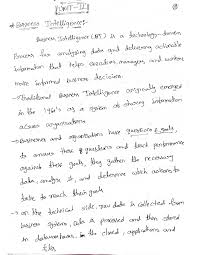 UNIT-II
* Business Intelligence:-
Business Intelligence (BI) is a technology-driven
process for analyzing data and delivering actionable
information that helps executives, managers and workers
make informed business decisions.
→ Traditional Business Intelligence originally emerged
in the 1960's as a system of sharing information
across organizations.
→ Businesses and organizations have questions & goals,
to answer these questions and track performance
against these goals, they gather the necessary
data, analyze it, and determine which actions to
take to reach their goals
→ On the technical side, raw data is collected from
business systems, data is processed and then stored
in data warehouses, the cloud, applications and
files